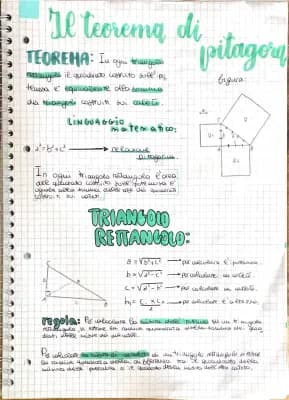 Il teorema di
pitagora
TEOREMA: In ogni triangolo
rettangolo il quadrato costruito sull'
è equivalente alla somma
dei costruiti sui cateti.
figura:
LINGUAGGIO
matematico:
a²=b²+c² → relazione
pitagorica
In ogni triangolo rettangolo l'area
del quadrato costruito sull'ipotenusa è
uguale alla somma delle aree dei quadrati
costruiti sui cateti.
TRIANGOLO
RETTANGOLO:
→ per calcolare l'ipotenusa.
→ per calcolare un cateto.
→ per calcolare un cateto.
→ per calcolare l'altezza.
regola: Per calcolare la misura dell'ipotenusa di un triangolo
rettangolo si estrae la radice quadrata della somma dei
delle misure dei cateti.
Per calcolare la misura di un cateto di un triangolo rettangolo si estrae
la radice quadrata della differenza tra il quadrato della
misura dell'ipotenusa e il quadrato della misura dell'altro cateto.